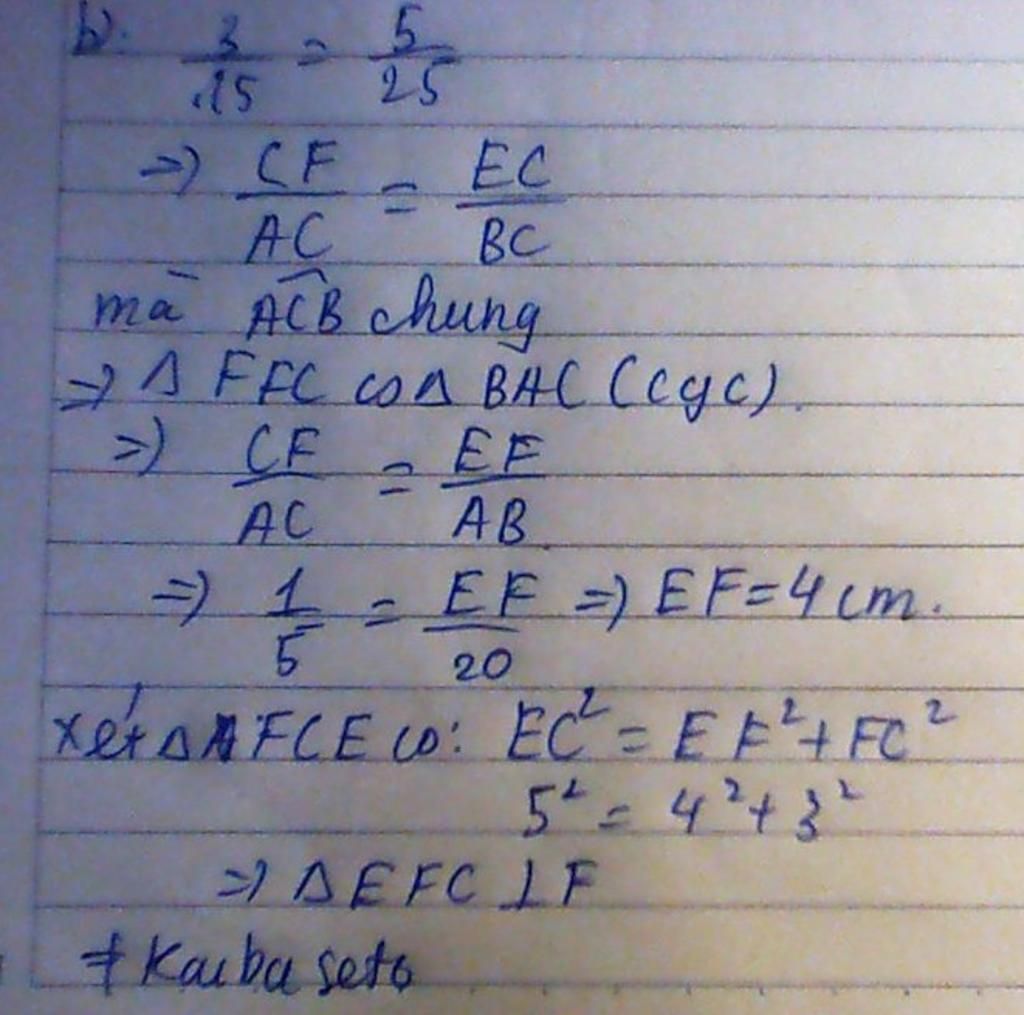 b. 3/15 = 5/25
=> CF/AC = EC/BC
mà ACB chung
=> Δ FEC ∽ Δ BAC (cgc).
=> CF/AC = EF/AB
=> 1/5 = EF/20 => EF = 4 cm.
xét Δ FCE có: EC² = EF² + FC²
5² = 4² + 3²
=> Δ EFC ⊥ F
# Kaiba seto